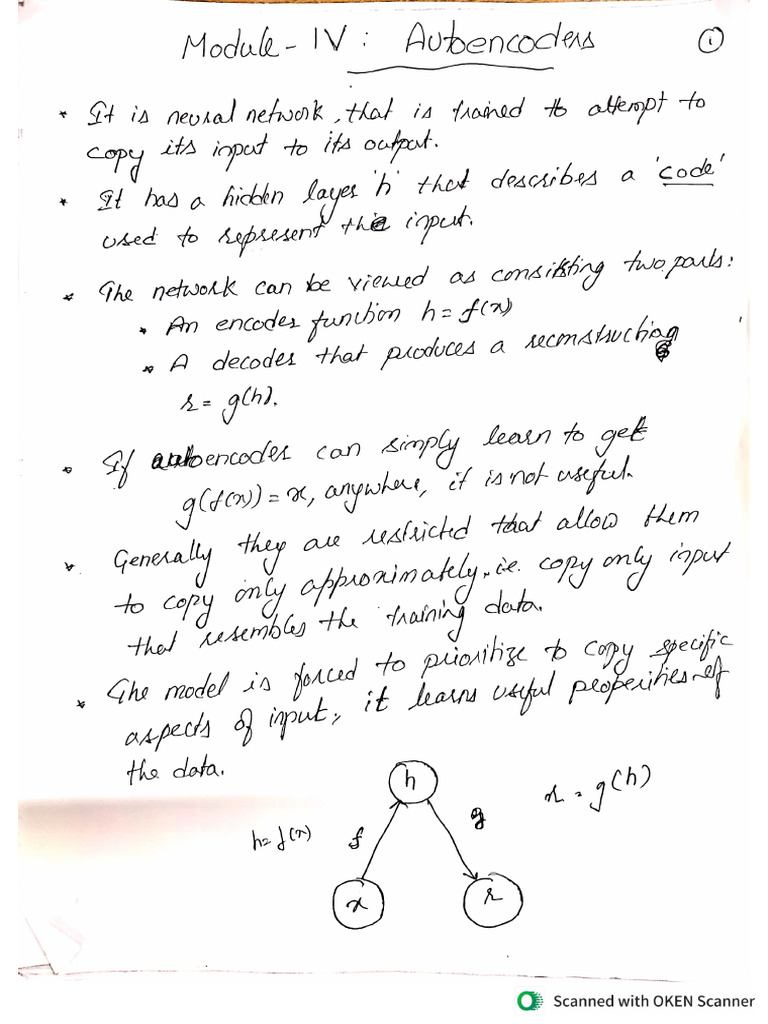 Module - IV : Autoencoders
1
* It is neural network, that is trained to attempt to
copy its input to its output.
* It has a hidden layer 'h' that describes a 'code'
used to represent the input.
* The network can be viewed as consisting two parts:
* An encoder function h = f(x)
* A decoder that produces a reconstruction
r = g(h).
* If autoencoder can simply learn to get
g(f(x)) = x, anywhere, it is not useful.
* Generally they are restricted that allow them
to copy only approximately, i.e. copy only input
that resembles the training data.
* The model is forced to prioritize to copy specific
aspects of input, it learns useful properities of
the data.
h
r = g(h)
h = f(x)
f
g
x
r
Scanned with OKEN Scanner